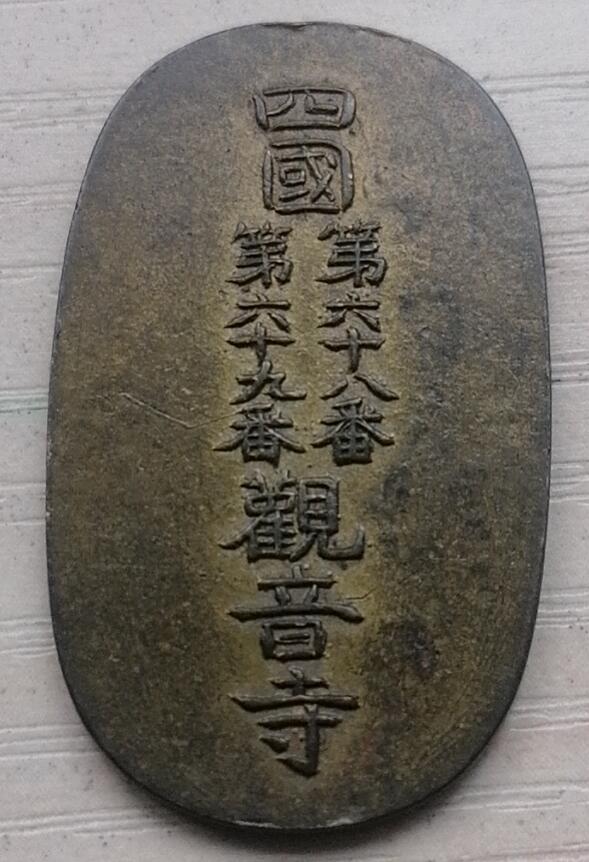 四國
第六十八番
第六十九番
觀音寺